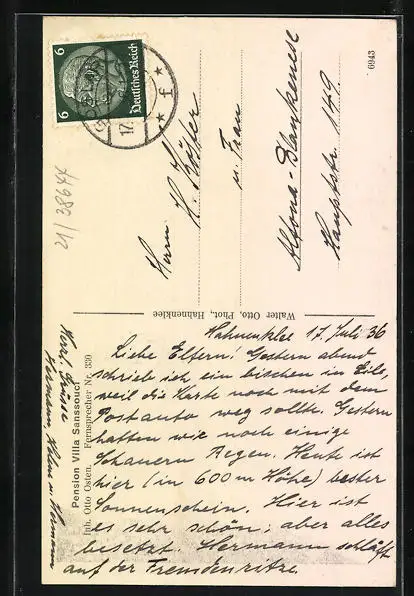 Hahnenklee 17. Juli 36
Liebe Eltern! Gestern abend
schrieb ich ein bischen in Eile,
weil die Karte noch mit dem
Postauto weg sollte. Gestern
hatten wir noch einige
Schauern Regen. Heute ist
hier (in 600 m Höhe) bester
Sonnenschein. Hier ist
es sehr schön, aber alles
besetzt. Hermann schläft
auf der Fremdenritze.
Herzl. Grüsse
Hermann u. Hermann
Pension Villa Sanssouci
Inh. Otto Osten. Fernsprecher Nr. 330
Walter Otto, Phot., Hahnenklee
Herrn H. Köster
u. Frau
Altona-Blankenese
Hauptstr. 149
6943
6 6
Deutsches Reich
17.
f
21/38644